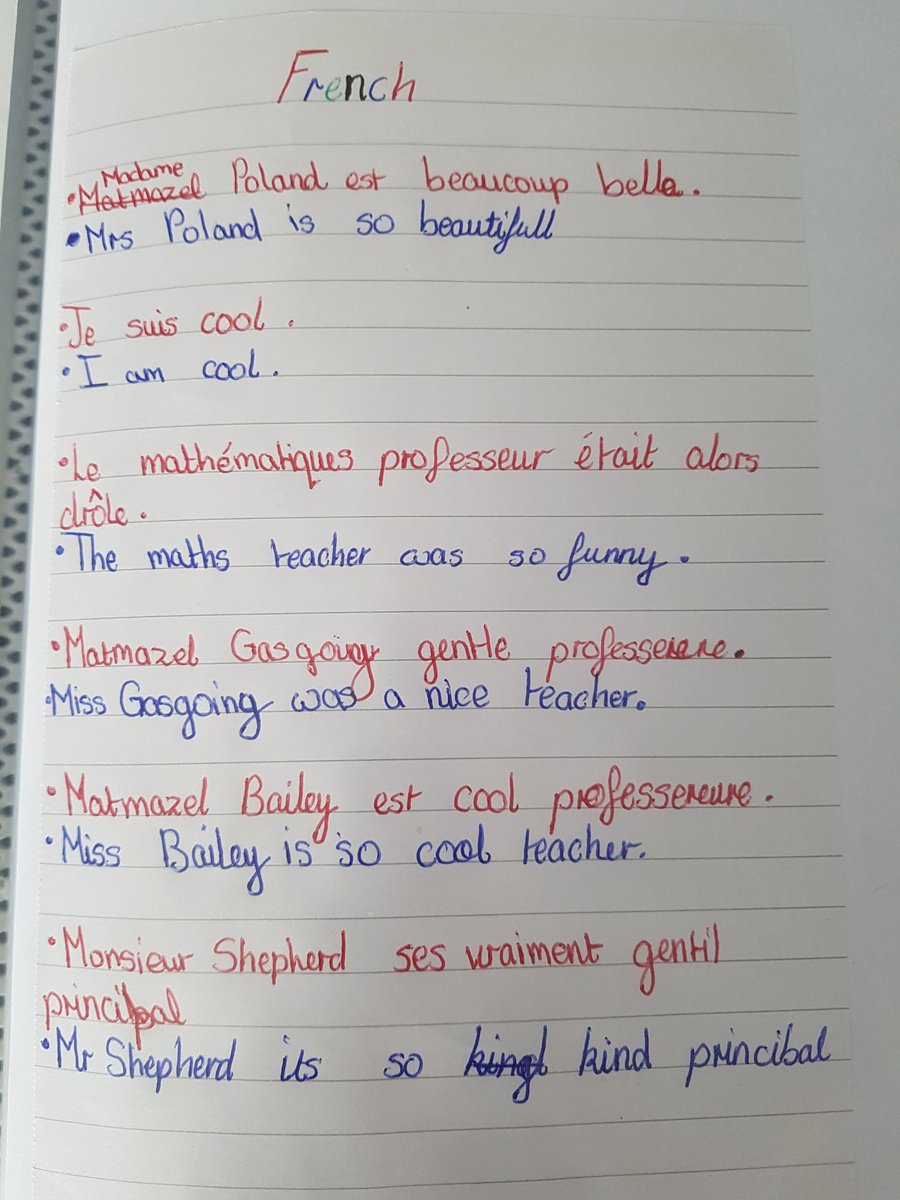 French
Madame
•Matmazel Poland est beaucoup bella.
•Mrs Poland is so beautifull
•Je suis cool.
•I am cool.
•Le mathématiques professeur était alors
drôle.
•The maths teacher was so funny.
•Matmazel Gasgoing gentle professeure.
•Miss Gasgoing was a nice teacher.
•Matmazel Bailey est cool professereure.
•Miss Bailey is so cool teacher.
•Monsieur Shepherd ses vraiment gentil
principal
•Mr Shepherd its so kind princibal